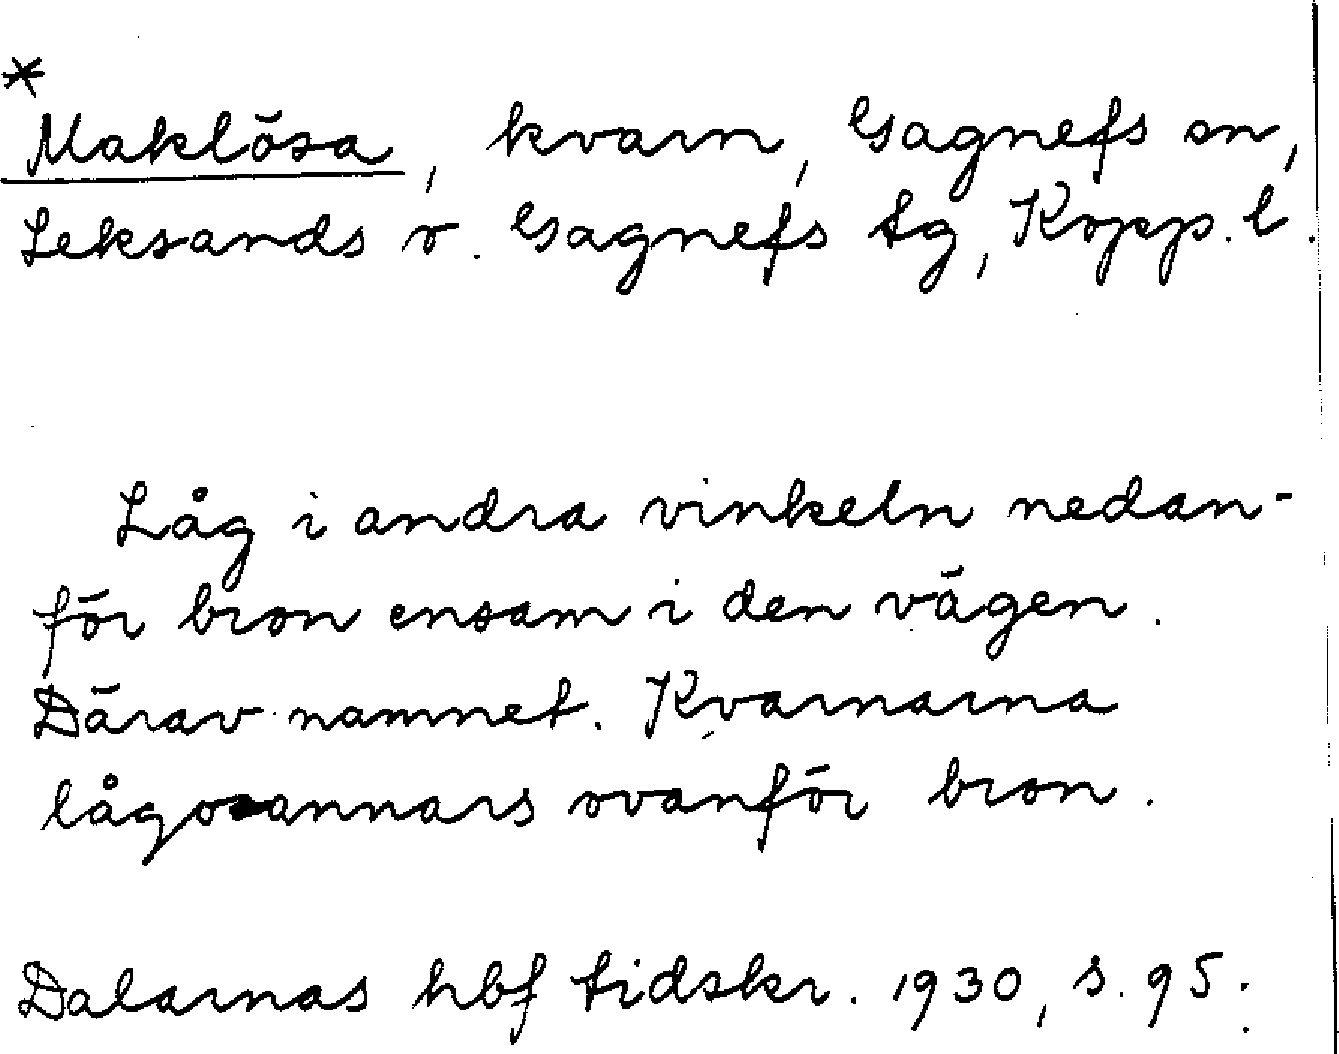 *
Maklösa, kvarn, Gagnefs sn,
Leksands o. Gagnefs tg, Kopp. l.
Låg i andra vinkeln nedan-
för bron ensam i den vägen.
Därav namnet. Kvarnarna
lågo annars ovanför bron.
Dalarnas hbf tidskr. 1930, s. 95.